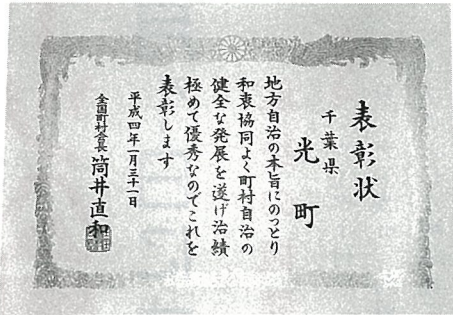 表彰状
千葉県
光町
地方自治の本旨にのっとり
和衷協同よく町村自治の
健全な発展を遂げ治績
極めて優秀なのでこれを
表彰します
平成四年一月三十一日
全国町村会長 筒井直和